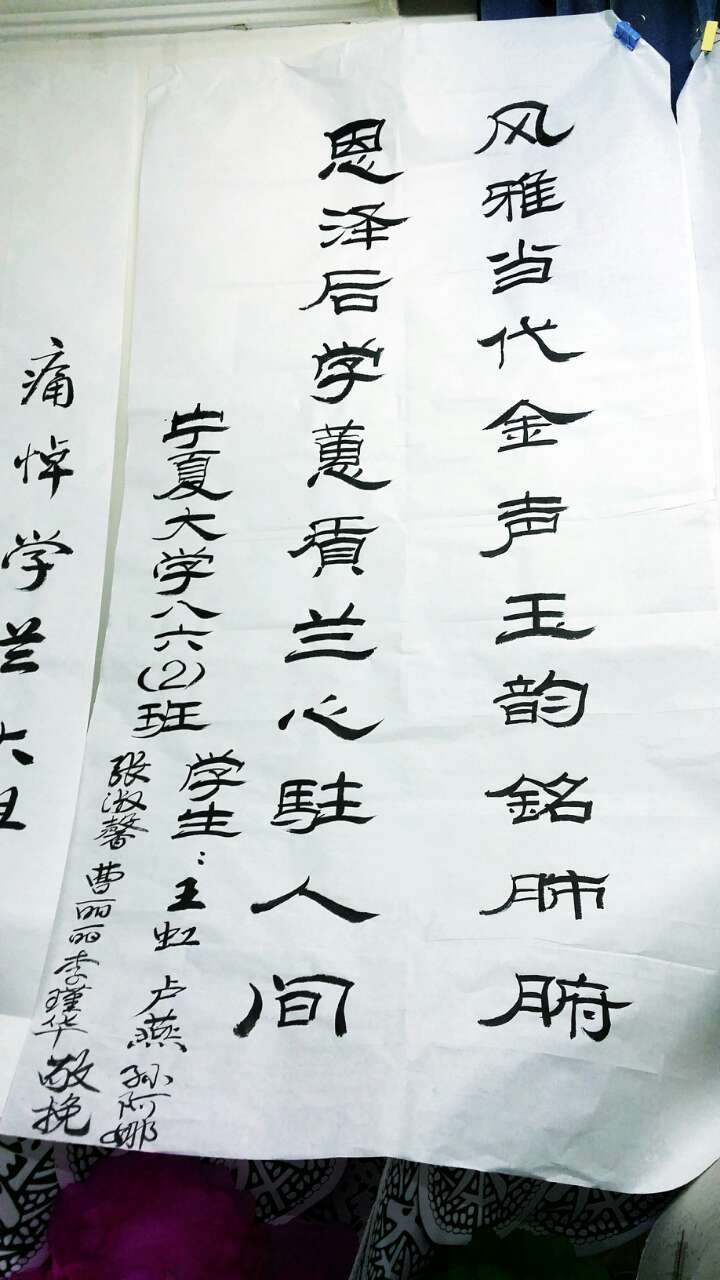 风雅当代金声玉韵銘肺腑
恩泽后学蕙質兰心駐人间
宁夏大学八六(2)班
学生：王虹 卢燕 孙阿娜
张淑馨 曹丽丽 李瑾华 敬挽
痛悼学兰